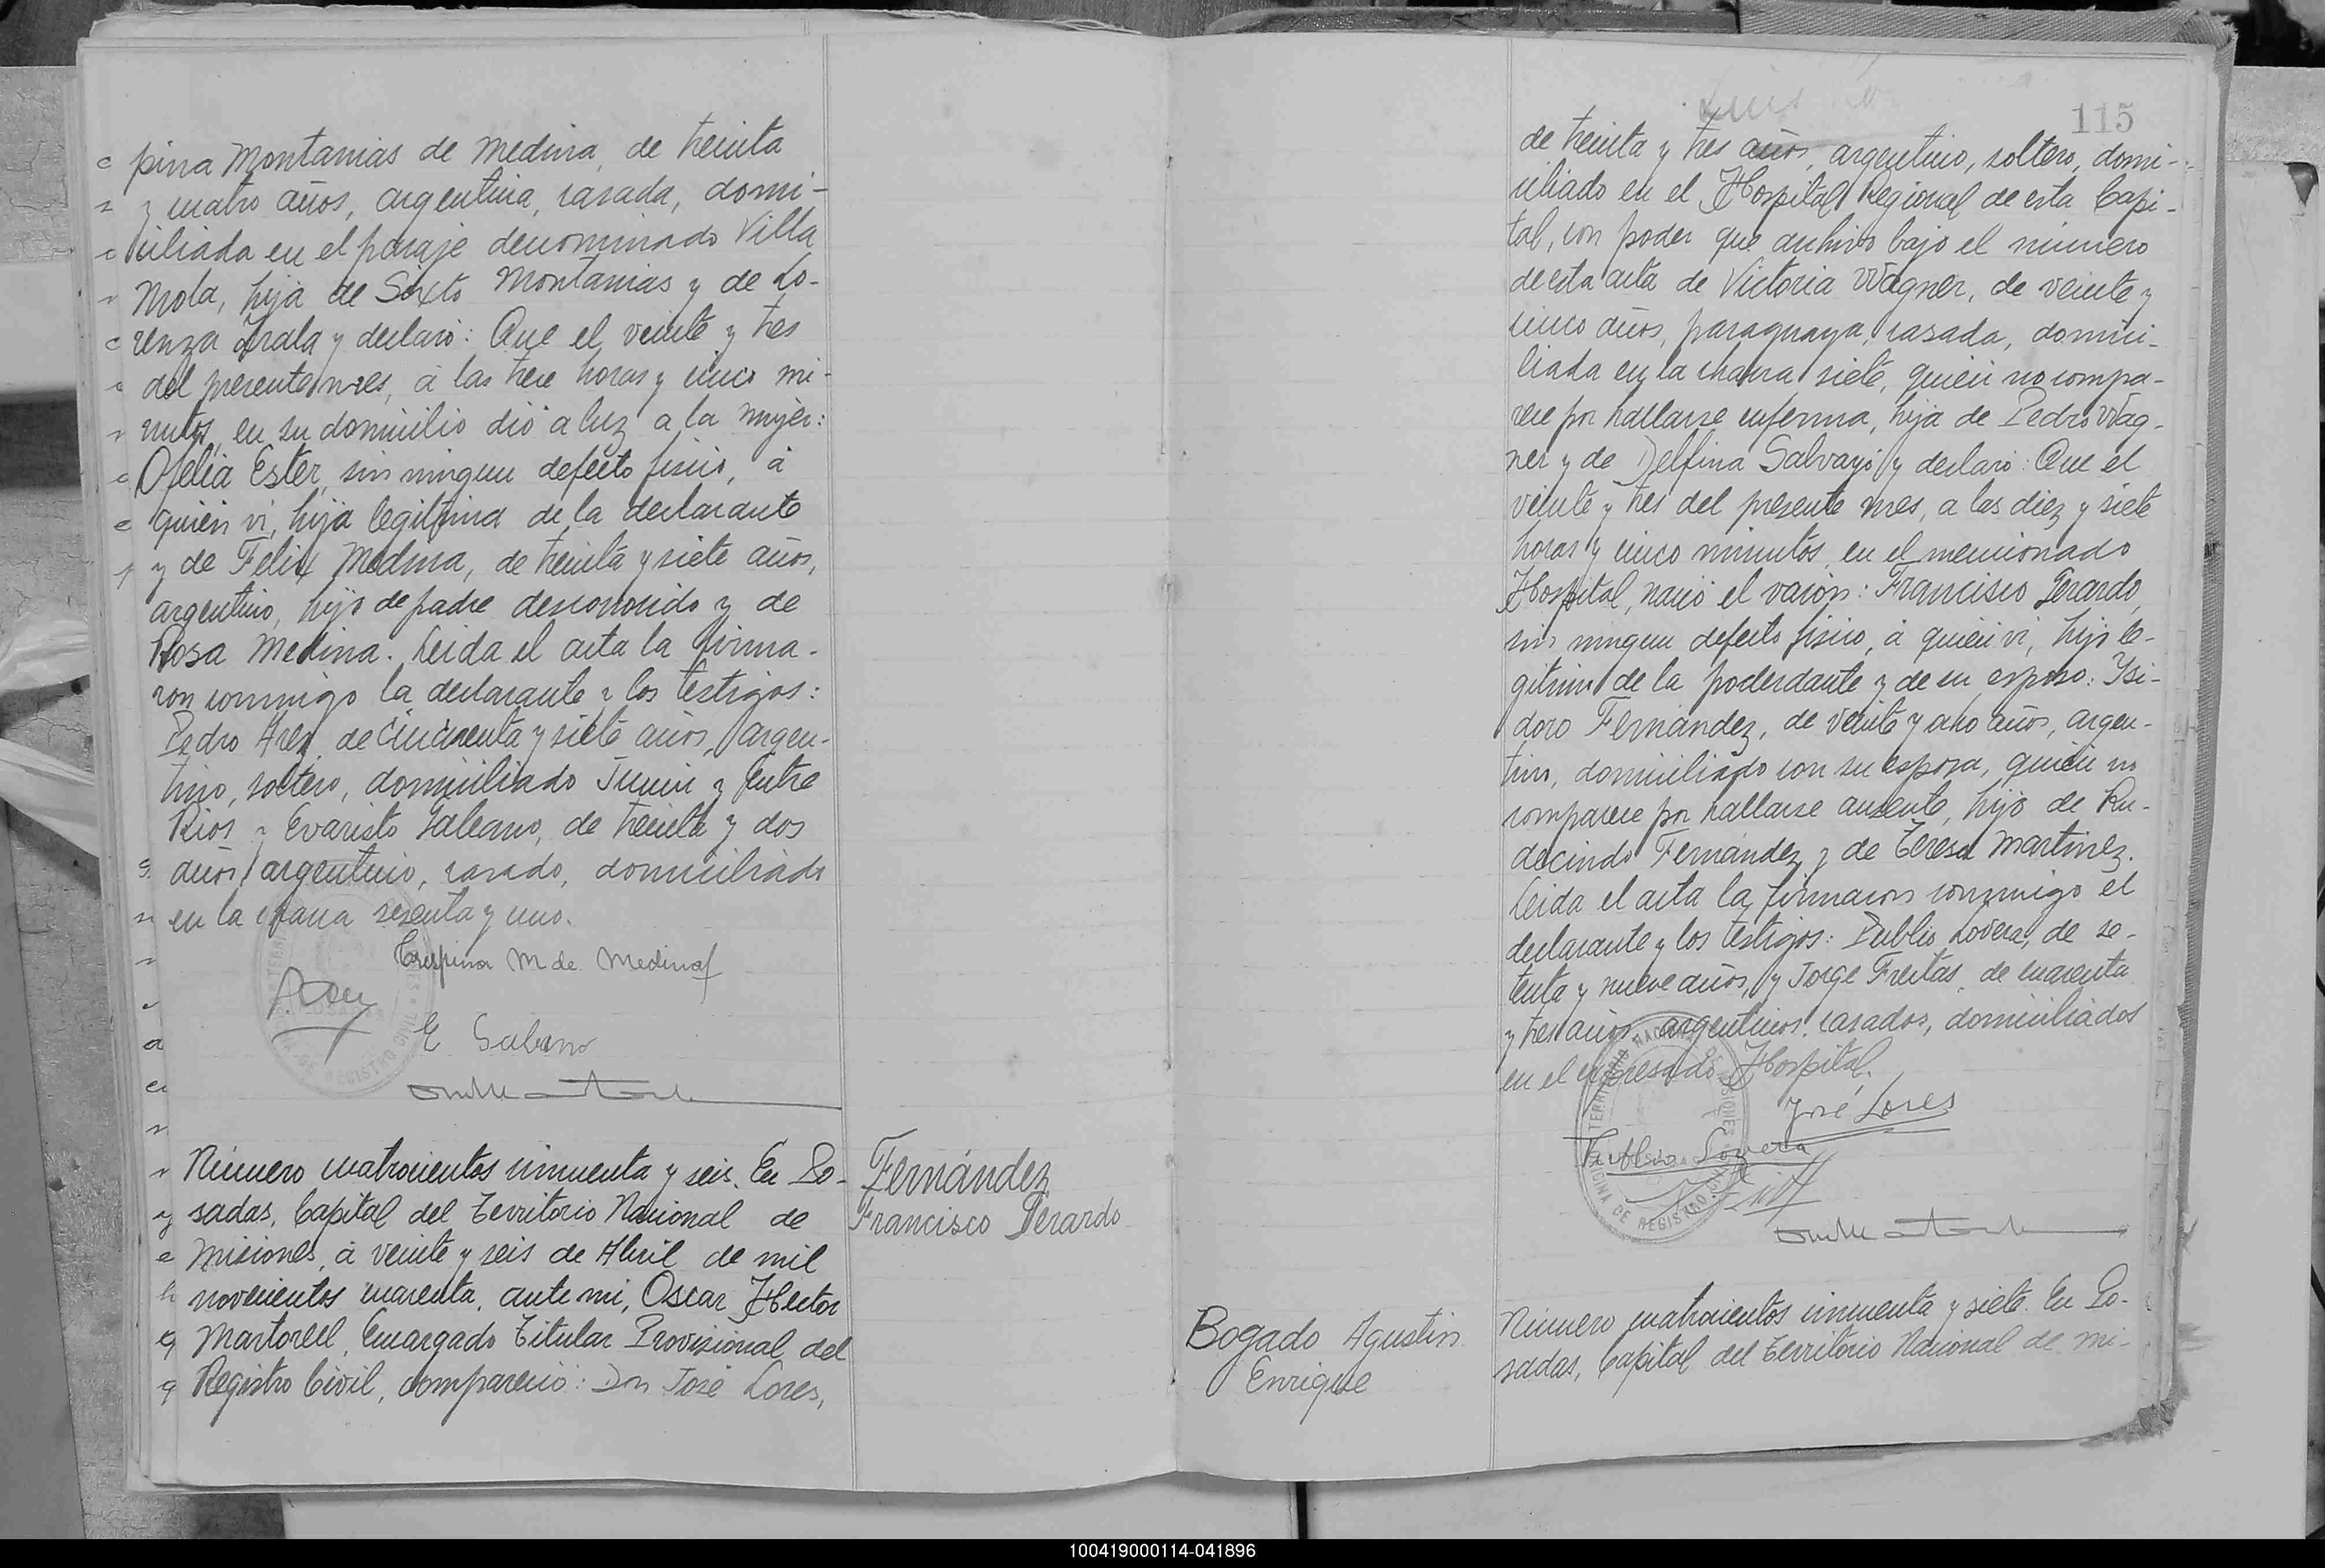 pina Montanias de Medina, de treinta
y cuatro años, argentina, casada, domi-
ciliada en el paraje denominado Villa
Mola, hija de Sixto Montanias y de Lo-
renza Irala y declaró: Que el veinte y tres
del presente mes, á las trece horas y cinco mi-
nutos, en su domicilio dió a luz a la mujer:
Ofelia Ester, sin ningun defecto fisico, á
quien vi, hija legitima de la declarante
y de Felix Medina, de treinta y siete años,
argentino, hijo de padre desconocido y de
Rosa Medina. Leida el acta la firma-
ron conmigo la declarante y los testigos:
Pedro Ares, de cincuenta y siete años, argen-
tino, soltero, domiciliado Junin y Entre
Rios y Evaristo Galeano, de treinta y dos
años, argentino, casado, domiciliado
en la chacra sesenta y uno.
Crispina M de Medina
P. Ares
E Galeano
Número cuatrocientos cincuenta y seis. En Po-
sadas, Capital del Territorio Nacional de
Misiones, á veinte y seis de Abril de mil
novecientos cuarenta, ante mi, Oscar Hector
Martorell, Encargado Titular Provisional del
Registro Civil, compareció: Don José Lores,
Fernández
Francisco Gerardo
115
de treinta y tres años, argentino, soltero, domi-
ciliado en el Hospital Regional de esta Capi-
tal, con poder que archivo bajo el número
de esta acta de Victoria Wagner, de veinte y
cinco años, paraguaya, casada, domici-
liada en la chacra siete, quien no compa-
rece por hallarse enferma, hija de Pedro Wag-
ner y de Delfina Salvayo y declaró: Que el
veinte y tres del presente mes, a las diez y siete
horas y cinco minutos, en el mencionado
Hospital, nació el varón: Francisco Gerardo,
sin ningun defecto fisico, á quien vi, hijo le-
gitimo de la poderdante y de su esposo: Ysi-
doro Fernández, de veinte y ocho años, argen-
tino, domiciliado con su esposa, quien no
comparece por hallarse ausente, hijo de Ru-
decindo Fernández y de Teresa Martinez.
Leida el acta la firmaron conmigo el
declarante y los testigos: Publio Lovera, de se-
tenta y nueve años, y Jorge Freitas, de cuarenta
y tres años, argentinos, casados, domiciliados
en el expresado Hospital.
José Lores
Publio Lovera
Bogado Agustin
Enrique
Número cuatrocientos cincuenta y siete. En Po-
sadas, Capital del Territorio Nacional de Mi-
100419000114-041896